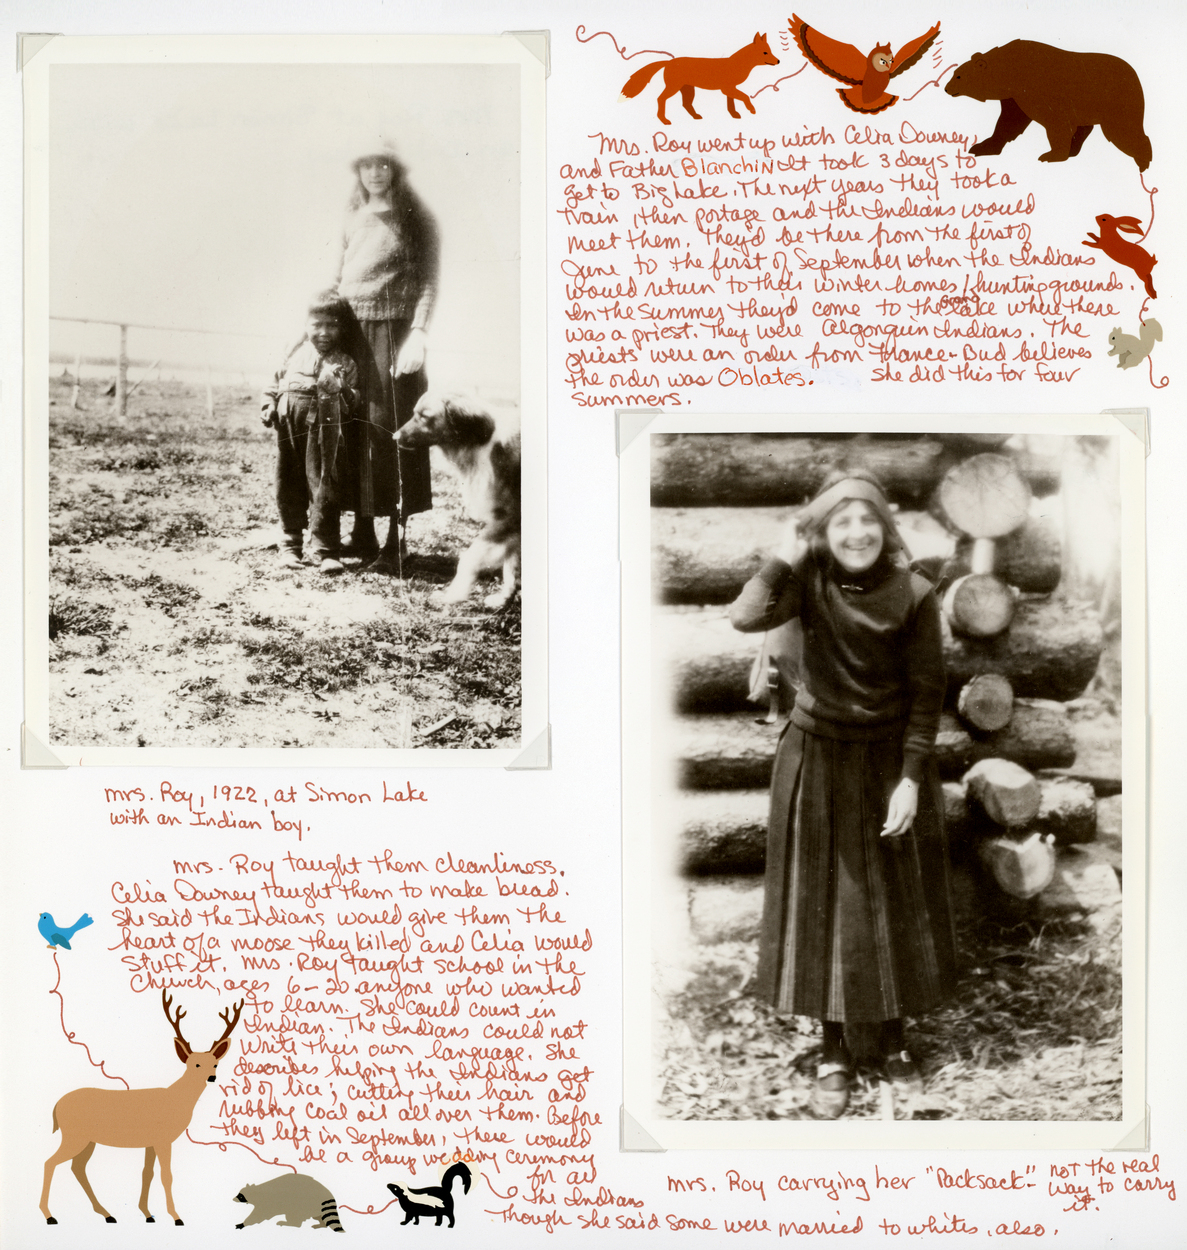 Mrs. Roy went up with Celia Downey,
and Father Blanchin. It took 3 days to
get to Big Lake. The next years they took a
train, then portage and the Indians would
meet them. They'd be there from the first of
June to the first of September when the Indians
would return to their winter homes/hunting grounds.
In the summer they'd come to the Grand Lake where there
was a priest. They were Algonquin Indians. The
priests were an order from France - Bud believes
the order was Oblates. She did this for four
summers.
Mrs. Roy, 1922, at Simon Lake
with an Indian boy.
Mrs. Roy taught them cleanliness.
Celia Downey taught them to make bread.
She said the Indians would give them the
heart of a moose they killed and Celia would
stuff it. Mrs. Roy taught school in the
Church, ages 6-20 anyone who wanted
to learn. She could count in
Indian. The Indians could not
write their own language. She
describes helping the Indians get
rid of lice; cutting their hair and
rubbing coal oil all over them. Before
they left in September, there would
be a group wedding ceremony
for all
the Indians
though she said some were married to whites, also.
Mrs. Roy carrying her "Packsack" - not the real
way to carry
it.